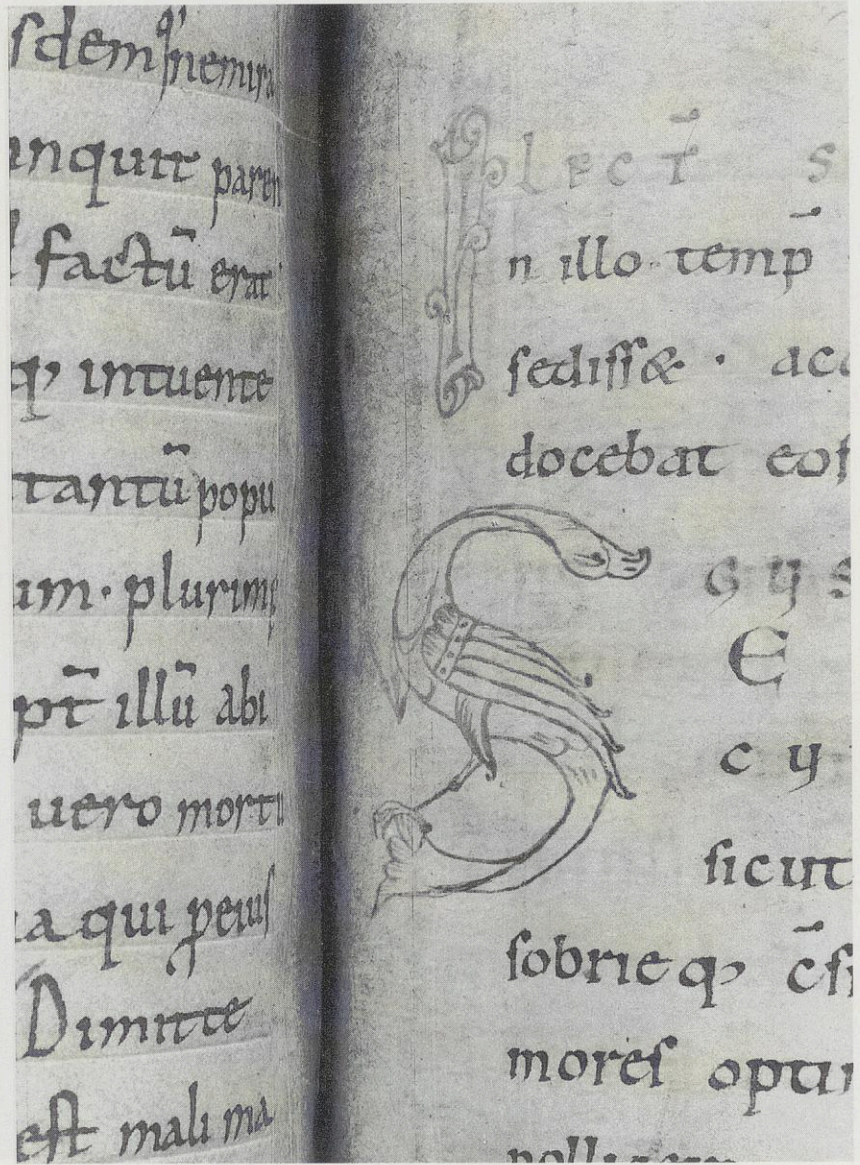 sdem q' nemira
inquit paren
factū erat
q; intuente
tantū popu
um · plurimi
pt̄ illū abi
uero mortu
a qui peius
Dimitte
est mali ma
LECT̄ S
In illo temp̄
sediss& · acc
docebat eos
S
GYS
E
CY
sicut
sobrieq; c̄si
mores opti